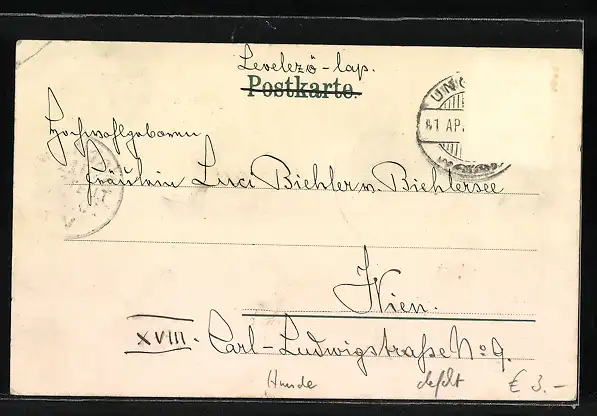 Levelező-lap.
Postkarte.
UN
01 AP.
Hochwohlgeboren
Fräulein Luci Biehler v. Biehlersee
Wien.
XVIII. Carl-Ludwigstraße No 9.
Hunde defekt € 3.-